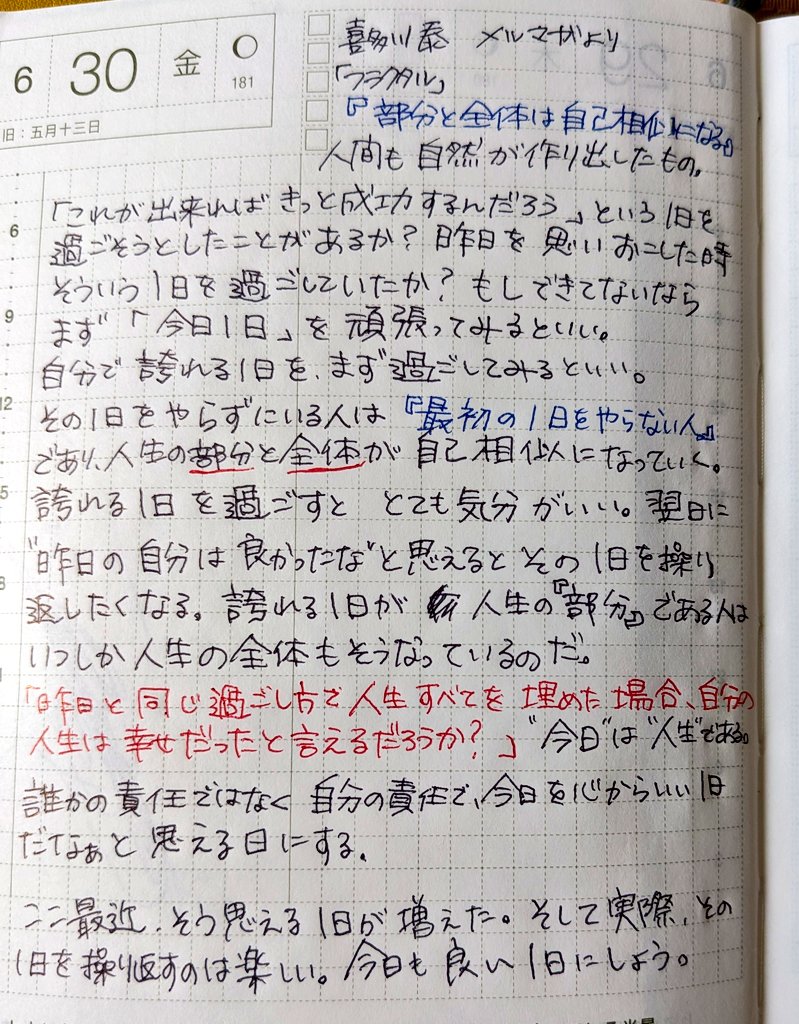 6 30 金
181
旧：五月十三日
喜多川泰 メルマガより
「フラクタル」
『部分と全体は自己相似になる』
人間も自然が作り出したもの。
「これが出来ればきっと成功するんだろう」という1日を
過ごそうとしたことがあるか？昨日を思いおこした時
そういう1日を過ごしていたか？もしできてないなら
まず「今日1日」を頑張ってみるといい。
自分で誇れる1日を、まず過ごしてみるといい。
その1日をやらずにいる人は『最初の1日をやらない人』
であり、人生の部分と全体が自己相似になっていく。
誇れる1日を過ごすと とても気分がいい。翌日に
"昨日の自分は良かったな"と思えるとその1日を繰り
返したくなる。誇れる1日が 人生の『部分』である人は
いつしか人生の全体もそうなっているのだ。
「昨日と同じ過ごし方で人生すべてを埋めた場合、自分の
人生は幸せだったと言えるだろうか？」"今日"は"人生"である。
誰かの責任ではなく自分の責任で、今日を心からいい1日
だなぁと思える日にする。
ここ最近、そう思える1日が増えた。そして実際、その
1日を操り返すのは楽しい。今日も良い1日にしよう。
6
9
12